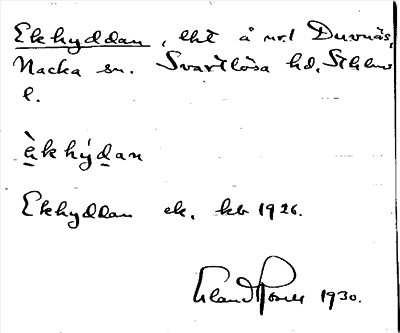 Ekhyddan, lht å nr. 1 Duvnäs,
Nacka sn. Svartlösa hd, Sthlms
l.
è̱khý̱da̱n
Ekhyddan ek. kb 1926.
1930.